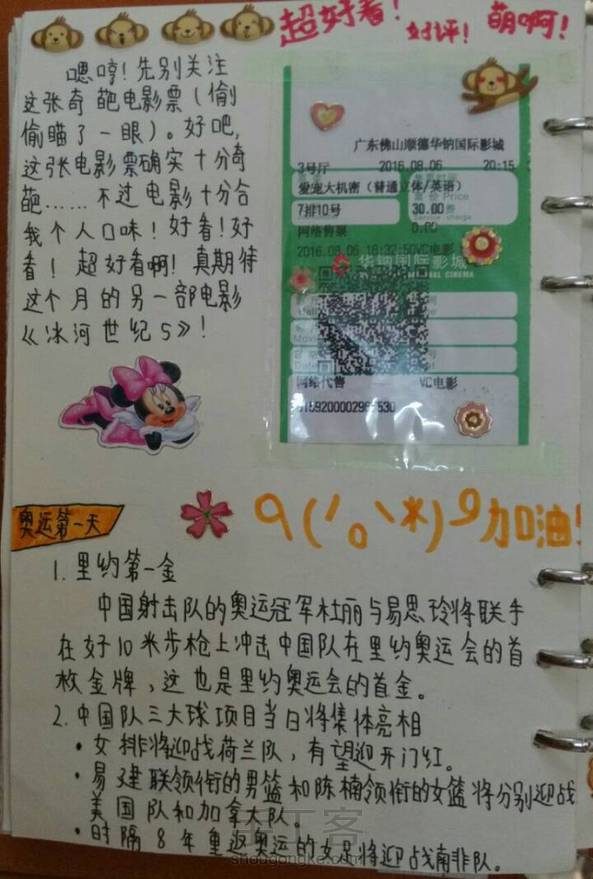 超好看!
好评!
萌啊!
嗯哼!先别关注
这张奇葩电影票(偷
偷瞄了一眼)。好吧,
这张电影票确实十分奇
葩……不过电影十分合
我个人口味!好看!好
看!超好看啊!真期待
这个月的另一部电影
《冰河世纪5》!
广东佛山顺德华钠国际影城
3号厅 2016.08.06 20:15
爱宠大机密(普通立体/英语)
票价 Price
7排10号 30.00
网络售票 0.00
2016.08.06 16:32:50VC电影
华钠国际影城
CINEMA
网络代售 VC电影
奥运第一天
9(/o\米)9加油!
1.里约第一金
中国射击队的奥运冠军杜丽与易思玲将联手
在好10米步枪上冲击中国队在里约奥运会的首
枚金牌,这也是里约奥运会的首金。
2.中国队三大球项目当日将集体亮相
•女排将迎战荷兰队,有望迎开门红。
•易建联领衔的男篮和陈楠领衔的女篮将分别迎战
美国队和加拿大队。
•时隔8年重返奥运的女足将迎战南非队。
手工客
shougongke.com